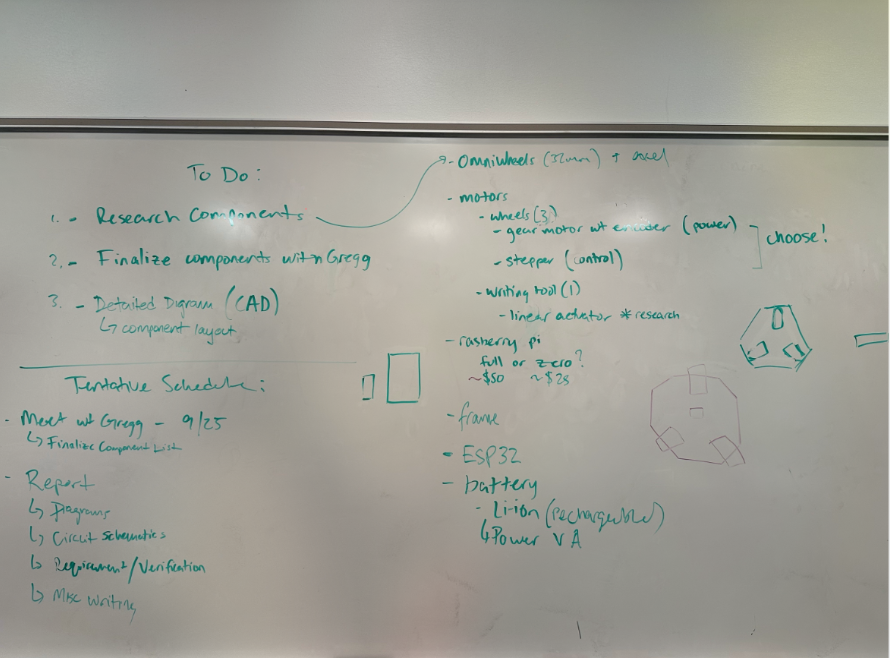 To Do:
1. - Research Components
2. - Finalize components with Gregg
3. - Detailed Digram (CAD)
↳ component layout
Tentative Schedule:
- Meet w/ Gregg - 9/25
↳ Finalize Component List
- Report
↳ Diagrams
↳ Circuit Schematics
↳ Requirement/Verification
↳ Misc Writing
- Omniwheels (32mm) + axel
- motors
- wheels (3)
- gear motor w/ encoder (power)
- stepper (control)
choose!
- writing tool (1)
- linear actuator * research
- rasberry pi
full or zero?
~$50 ~$25
- frame
- ESP32
- battery
- Li-ion (rechargeable)
↳ Power V A